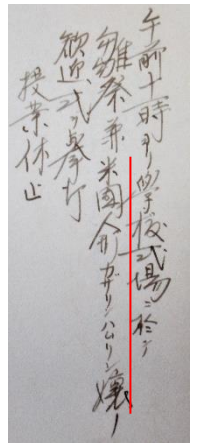 午前十時ヨリ学校式場ニ於テ
雛祭兼米國人形カザリンハムリン嬢ノ
歓迎式ヲ挙行
授業休止